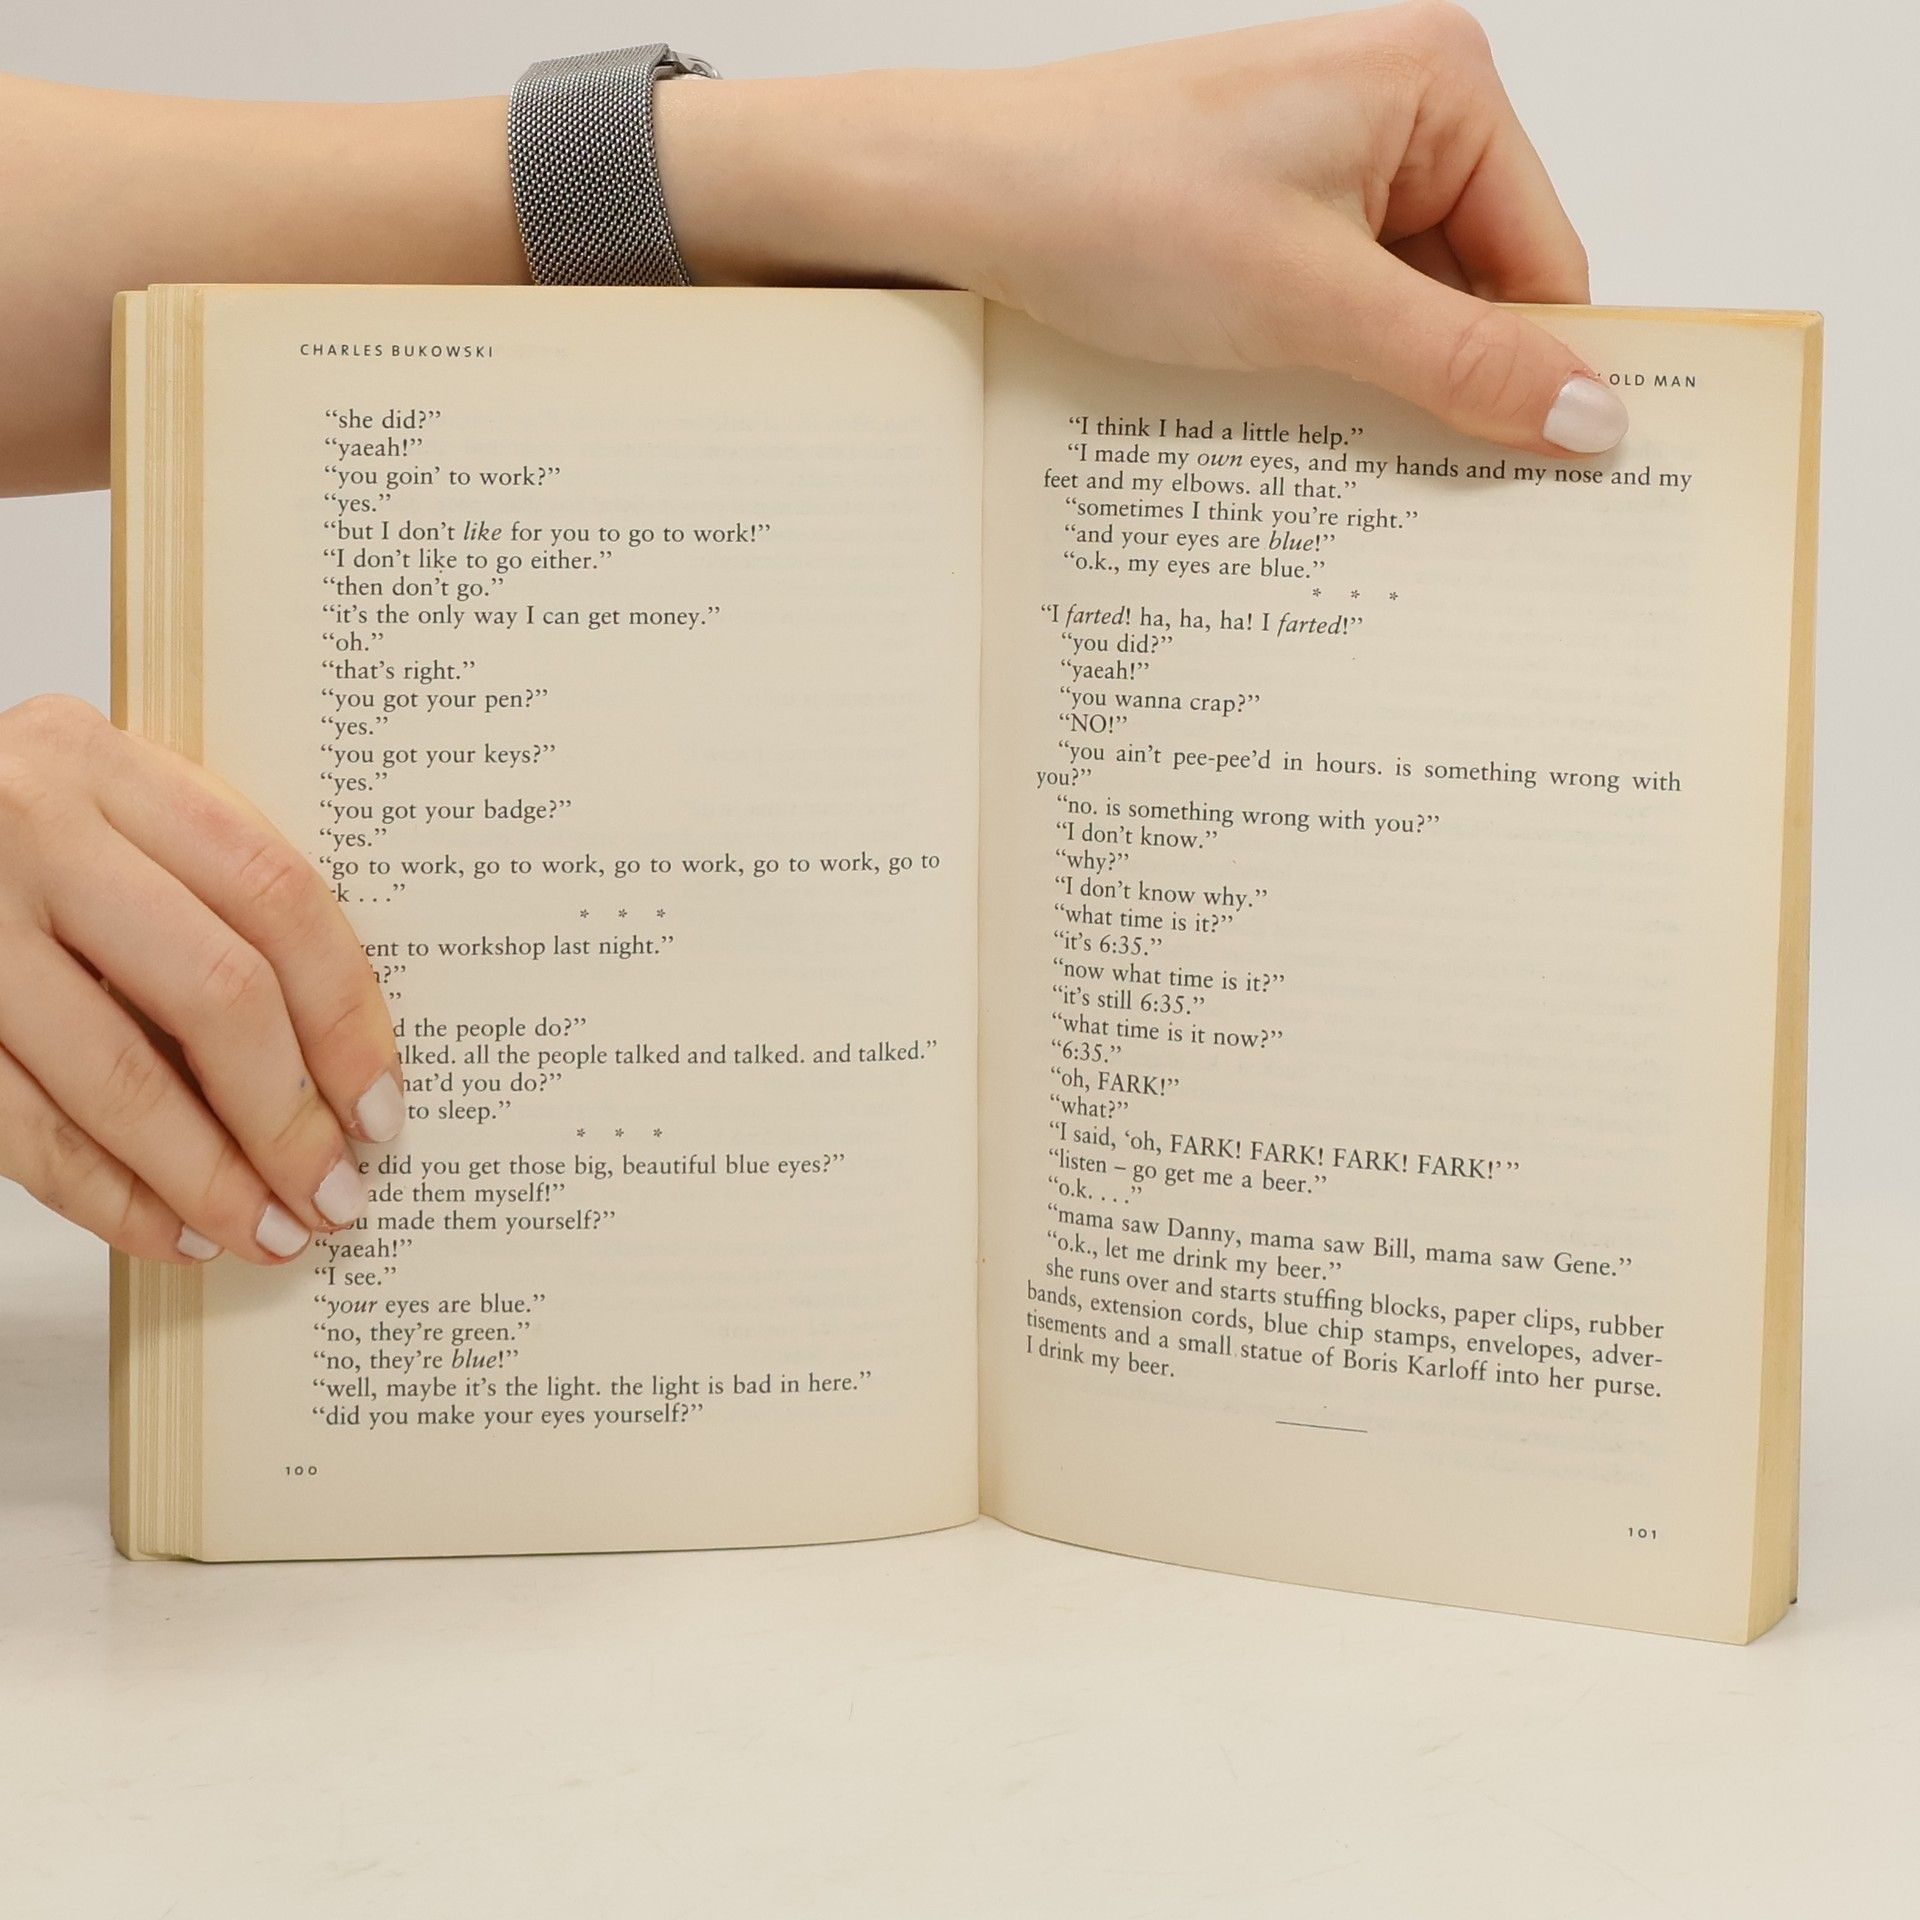 CHARLES BUKOWSKI
“she did?”
“yaeah!”
“you goin’ to work?”
“yes.”
“but I don’t like for you to go to work!”
“I don’t like to go either.”
“then don’t go.”
“it’s the only way I can get money.”
“oh.”
“that’s right.”
“you got your pen?”
“yes.”
“you got your keys?”
“yes.”
“you got your badge?”
“yes.”
“go to work, go to work, go to work, go to work, go to
. . .”
* * *
to workshop last night.”
the people do?”
all the people talked and talked. and talked.”
you do?”
to sleep.”
* * *
did you get those big, beautiful blue eyes?”
them myself!”
made them yourself?”
“yaeah!”
“I see.”
“your eyes are blue.”
“no, they’re green.”
“no, they’re blue!”
“well, maybe it’s the light. the light is bad in here.”
“did you make your eyes yourself?”
100
OLD MAN
“I think I had a little help.”
“I made my own eyes, and my hands and my nose and my
feet and my elbows. all that.”
“sometimes I think you’re right.”
“and your eyes are blue!”
“o.k., my eyes are blue.”
* * *
“I farted! ha, ha, ha! I farted!”
“you did?”
“yaeah!”
“you wanna crap?”
“NO!”
“you ain’t pee-pee’d in hours. is something wrong with
you?”
“no. is something wrong with you?”
“I don’t know.”
“why?”
“I don’t know why.”
“what time is it?”
“it’s 6:35.”
“now what time is it?”
“it’s still 6:35.”
“what time is it now?”
“6:35.”
“oh, FARK!”
“what?”
“I said, ‘oh, FARK! FARK! FARK! FARK!’ ”
“listen – go get me a beer.”
“o.k. . . .”
“mama saw Danny, mama saw Bill, mama saw Gene.”
“o.k., let me drink my beer.”
she runs over and starts stuffing blocks, paper clips, rubber
bands, extension cords, blue chip stamps, envelopes, adver-
tisements and a small statue of Boris Karloff into her purse.
I drink my beer.
101